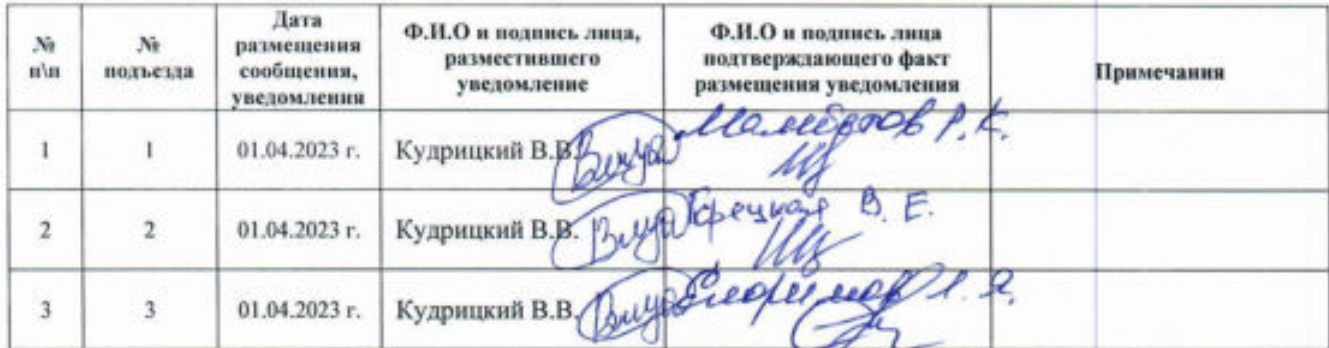 № п\п
№ подъезда
Дата размещения сообщения, уведомления
Ф.И.О и подпись лица, разместившего уведомление
Ф.И.О и подпись лица подтверждающего факт размещения уведомления
Примечания
1 1 01.04.2023 г. Кудрицкий В.В. Р. К.
2 2 01.04.2023 г. Кудрицкий В.В. В. Е.
3 3 01.04.2023 г. Кудрицкий В.В. Я.